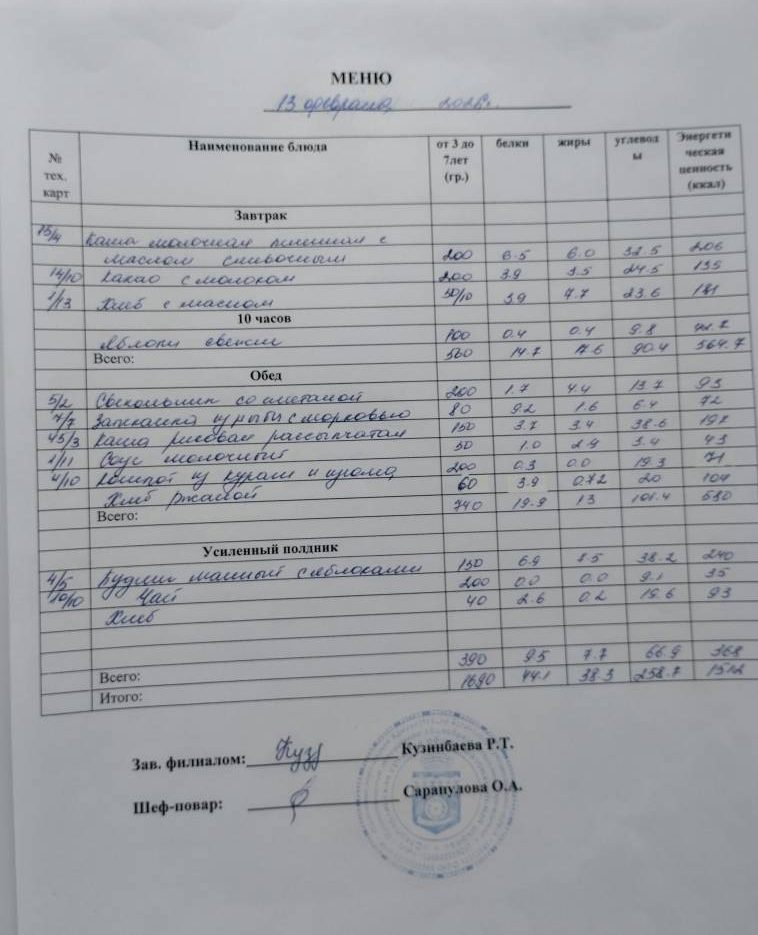 МЕНЮ
13 февраля 2026г.
№ тех. карт Наименование блюда от 3 до 7лет (гр.) белки жиры углеводы Энергетическая ценность (ккал)
Завтрак
15/4 Каша молочная пшенная с
маслом сливочным 200 6.5 6.0 32.5 206
14/10 Какао с молоком 200 3.9 3.5 24.5 135
1/13 Хлеб с маслом 50/10 3.9 7.7 23.6 181
10 часов
Яблоки свежие 100 0.4 0.4 9.8 42.7
Всего: 560 14.7 17.6 90.4 564.7
Обед
5/2 Свекольник со сметаной 200 1.7 4.4 13.7 93
7/7 Запеканка из рыбы с морковью 80 9.2 1.6 6.4 72
45/3 Каша рисовая рассыпчатая 150 3.7 3.4 38.6 197
1/11 Соус молочный 50 1.0 2.9 3.4 43
4/10 Компот из кураги и изюма 200 0.3 0.0 19.3 71
Хлеб ржаной 60 3.9 0.72 20 104
Всего: 740 19.9 13 101.4 580
Усиленный полдник
4/5 Пудинг манный с яблоками 150 6.9 7.5 38.2 240
10/10 Чай 200 0.0 0.0 9.1 35
Хлеб 40 2.6 0.2 19.6 93
Всего: 390 9.5 7.7 66.9 368
Итого: 1690 44.1 38.3 258.7 1512
Зав. филиалом: Кузинбаева Р.Т.
Шеф-повар: Сарапулова О.А.